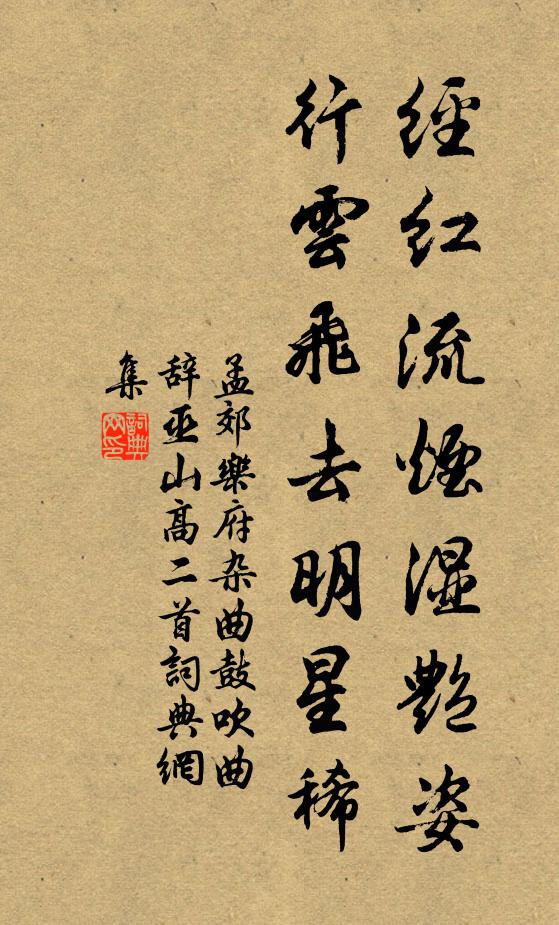 經紅流煙湿艷姿
行雲飛去明星稀
孟郊樂府杂曲鼓吹曲
辞巫山高二首詞典網
集
詞典
网印